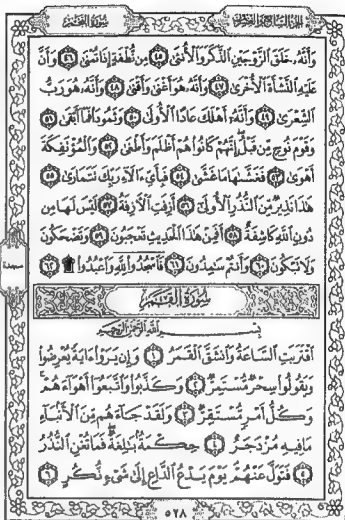 الجزء السابع والعشرون
سورة القمر
وَأَنَّهُۥ خَلَقَ ٱلزَّوۡجَيۡنِ ٱلذَّكَرَ وَٱلۡأُنثَىٰ ٤٥ مِن نُّطۡفَةٍ إِذَا تُمۡنَىٰ ٤٦ وَأَنَّ
عَلَيۡهِ ٱلنَّشۡأَةَ ٱلۡأُخۡرَىٰ ٤٧ وَأَنَّهُۥ هُوَ أَغۡنَىٰ وَأَقۡنَىٰ ٤٨ وَأَنَّهُۥ هُوَ رَبُّ
ٱلشِّعۡرَىٰ ٤٩ وَأَنَّهُۥٓ أَهۡلَكَ عَادًا ٱلۡأُولَىٰ ٥٠ وَثَمُودَاْ فَمَآ أَبۡقَىٰ ٥١
وَقَوۡمَ نُوحٖ مِّن قَبۡلُۖ إِنَّهُمۡ كَانُواْ هُمۡ أَظۡلَمَ وَأَطۡغَىٰ ٥٢ وَٱلۡمُؤۡتَفِكَةَ
أَهۡوَىٰ ٥٣ فَغَشَّىٰهَا مَا غَشَّىٰ ٥٤ فَبِأَيِّ ءَالَآءِ رَبِّكَ تَتَمَارَىٰ ٥٥
هَٰذَا نَذِيرٞ مِّنَ ٱلنُّذُرِ ٱلۡأُولَىٰٓ ٥٦ أَزِفَتِ ٱلۡأٓزِفَةُ ٥٧ لَيۡسَ لَهَا مِن
دُونِ ٱللَّهِ كَاشِفَةٌ ٥٨ أَفَمِنۡ هَٰذَا ٱلۡحَدِيثِ تَعۡجَبُونَ ٥٩ وَتَضۡحَكُونَ
وَلَا تَبۡكُونَ ٦٠ وَأَنتُمۡ سَٰمِدُونَ ٦١ فَٱسۡجُدُواْۤ لِلَّهِۤ وَٱعۡبُدُواْ ۩ ٦٢
سجدة
سُورَةُ القَمَر
بِسۡمِ ٱللَّهِ ٱلرَّحۡمَٰنِ ٱلرَّحِيمِ
ٱقۡتَرَبَتِ ٱلسَّاعَةُ وَٱنشَقَّ ٱلۡقَمَرُ ١ وَإِن يَرَوۡاْ ءَايَةٗ يُعۡرِضُواْ
وَيَقُولُواْ سِحۡرٞ مُّسۡتَمِرّٞ ٢ وَكَذَّبُواْ وَٱتَّبَعُوٓاْ أَهۡوَآءَهُمۡۚ
وَكُلُّ أَمۡرٖ مُّسۡتَقِرّٞ ٣ وَلَقَدۡ جَآءَهُم مِّنَ ٱلۡأَنۢبَآءِ
مَا فِيهِ مُزۡدَجَرٌ ٤ حِكۡمَةُۢ بَٰلِغَةٞۖ فَمَا تُغۡنِ ٱلنُّذُرُ
٥ فَتَوَلَّ عَنۡهُمۡۘ يَوۡمَ يَدۡعُ ٱلدَّاعِ إِلَىٰ شَيۡءٖ نُّكُرٍ ٦
٥٢٨